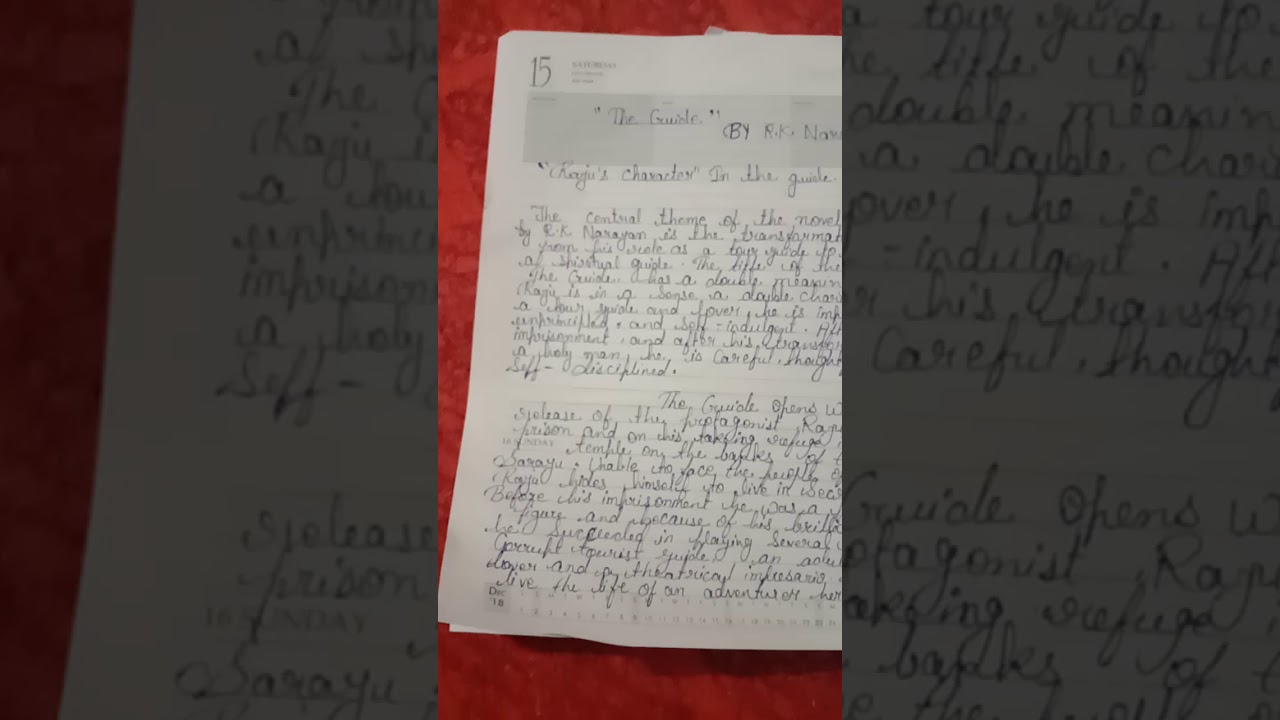 15 SATURDAY
"The Guide."
BY R.K. Nara
"Raju's character" In the guide.
The central theme of the novel
by R.K. Narayan is the transformat
from his role as a tour guide to
a spiritual guide. The title of the
The Guide, has a double meanin
Raju is in a sense a double chara
a tour guide and lover, he is imp
unprincipled, and self-indulgent. Aft
imprisonment, and after his transfor
a holy man, he is careful, though
Self-disciplined.
The Guide opens w
release of the protagonist, Raju
prison and on his taking refuge
16 SUNDAY temple on the banks of t
Sarayu. Unable to face the people
Raju hides himself to live in
Before his imprisonment he was a
figure and because of his brilli
he succeeded in playing several
Corrupt tourist guide, an adul
lover and a theatrical impresario
live the life of an adventurer her
Dec
'18